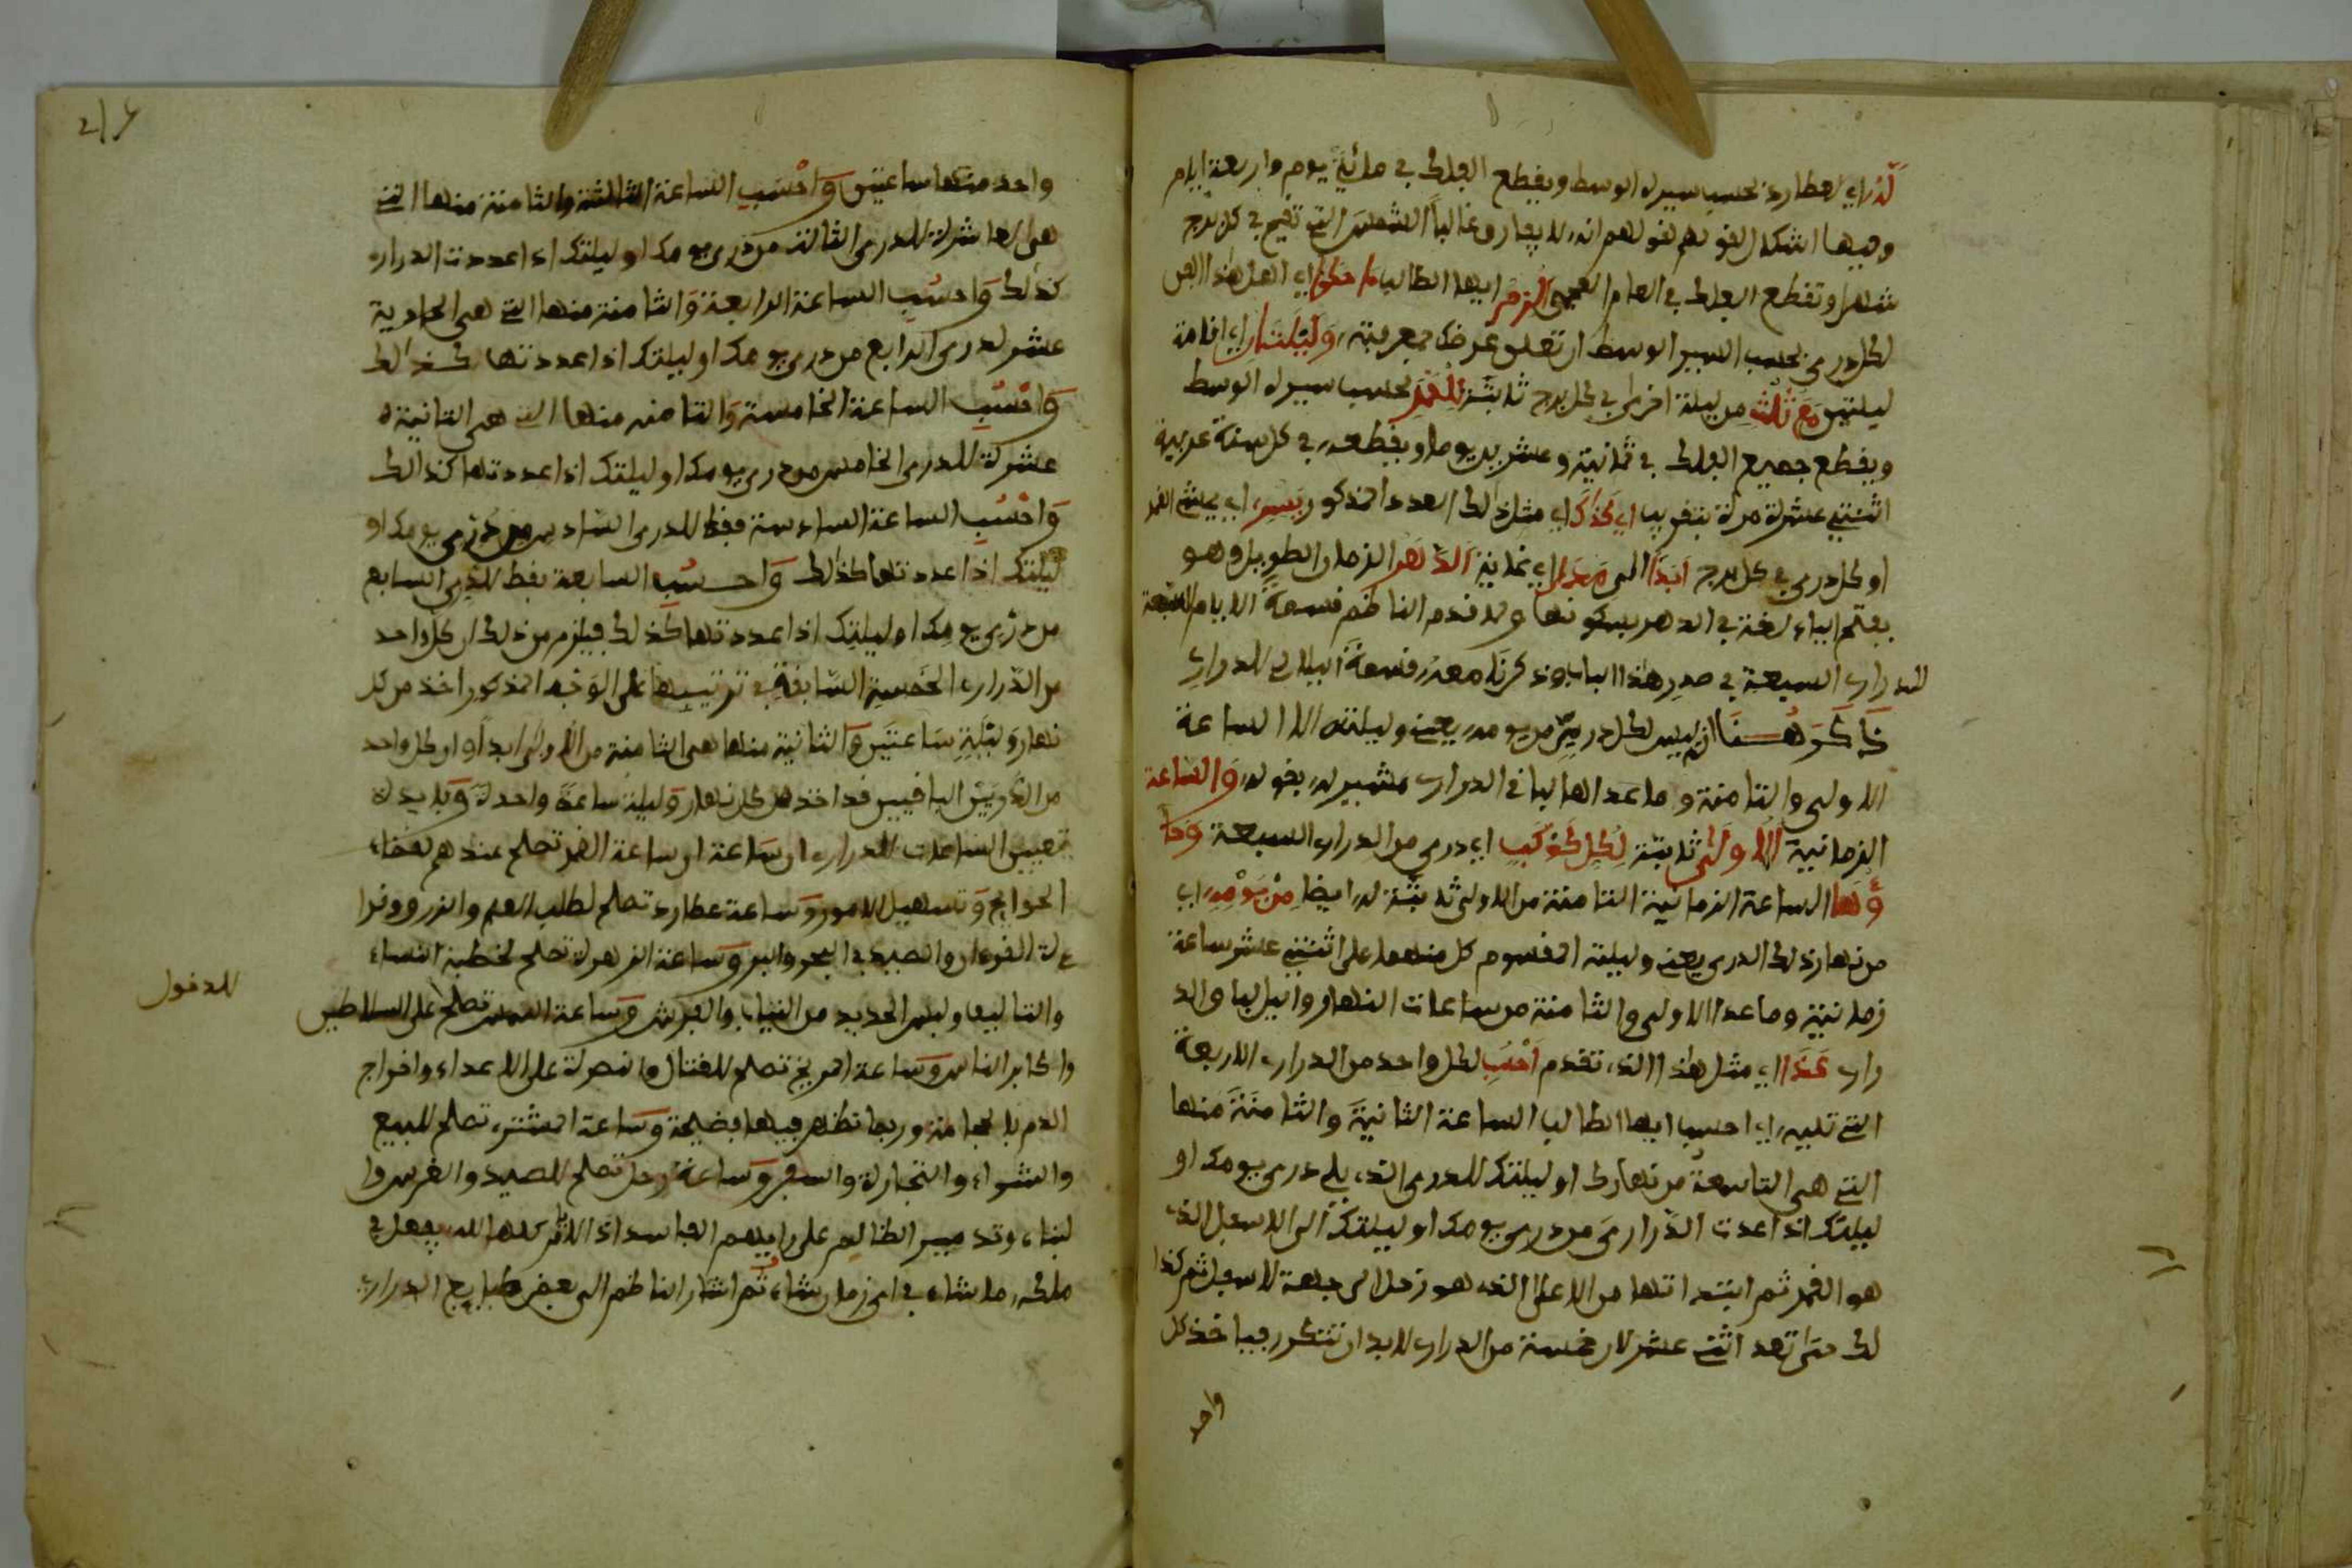 لذراي لعطارد بحسب سيره الوسط ويقطع الفلك في مائة يوم واربعة ايام
وفيها اشكل لقولهم انه لا يفارق غالبا الشمس التي تقيم في كل برج
شهرا وتقطع الفلك في العام العجمي الزم ايها الطالب ما حكى اي
لكل دري بحسب السير الوسط ان تعلق غرضك بمعرفته وليلتان اي اقامة
ليلتين مع ثلث من ليلة اخرى في كل برج ثابتة للقمر بحسب سيره الوسط
ويقطع جميع الفلك في ثمانية وعشرين يوما ويقطعه في كل سنة عربية
اثنتي عشرة مرة بتقريب اي كذا اي مثل ذلك العدد المذكور يسير اي يمشي القمر
او كل دري في كل برج ابدا الى مدا اي غاية الدهر الزمان الطويل وهو
بفتح الهاء لغة في الدهر بسكونها ولما قدم الناظم قسمة الايام السبعة
للدراري السبعة في صدر هذا الباب وذكرنا معه قسمة الليالي للدراري
ذكر هنا ان ليس لكل دري من يومه يعني وليلته الا الساعة
الاولى والثامنة وما عداها لباقي الدراري مشيرا له بقوله والساعة
الزمانية الاولى ثابتة لكل كوكب اي دري من الدراري السبعة وكا
ولها الساعة الزمانية الثامنة من الاولى ثابتة له ايضا من يومه اي
من نهار ذلك الدري يعني وليلته المقسوم كل منهما على اثنتي عشر ساعة
زمانية وما عدا الاولى والثامنة من ساعات النهار والليل لباقي الد
راري كذا اي مثل هذا الذي تقدم احسب لكل واحد من الدراري الاربعة
التي تليه اي احسب ايها الطالب الساعة الثانية والثامنة منها
التي هي التاسعة من نهارك او ليلتك للدري الذي يلي دري يومك او
ليلتك اذا عدت الدراري من دري يومك او ليلتك الى الاسفل الذي
هو القمر ثم ابتدأتها من الاعلى الذي هو زحل الى جهة الاسفل ثم كذا
لك حتى تعد اثني عشر لان خمسة من الدراري لا بد ان تتكرر فياخذ كل
واحد
واحد منها ساعتين واحسب الساعة الثالثة والثامنة منها التي
هي العاشرة للدري الثالث من دري يومك او ليلتك اذا عددت الدراري
كذلك واحسب الساعة الرابعة والثامنة منها التي هي الحادية
عشر لدري الرابع من دري يومك او ليلتك اذا عددتها كذلك
واحسب الساعة الخامسة والثامنة منها التي هي الثانية
عشرة للدري الخامس من دري يومك او ليلتك اذا عددتها كذلك
واحسب الساعة السادسة فقط للدري السادس من دري يومك او
ليلتك اذا عددتها كذلك واحسب السابعة فقط للدري السابع
من دري يومك او ليلتك اذا عددتها كذلك فيلزم من ذلك ان كل واحد
من الدراري الخمسة السابقة في ترتيبها على الوجه المذكور اخذ من كل
نهار وليلة ساعتين والثانية منها هي الثامنة من الاولى ابدا وان كل واحد
من الدريين الباقيين قد اخذ من كل نهار وليلة ساعة واحدة وفايدة
تعيين الساعات للدراري ان ساعة القمر تصلح عندهم لقضاء
الحوايج وتسهيل الامور وساعة عطارد تصلح لطلب العلم والزرع وقرا
ءة القرءان والصيد في البحر والبر وساعة الزهرة تصلح لخطبة النساء
والتاليف ولبس الجديد من الثياب والفرش وساعة الشمس تصلح على السلاطين
للدخول
واكابر الناس وساعة المريخ تصلح للقتال والنصرة على الاعداء واخراج
الدم بالحجامة وربما تظهر فيها فضيحة وساعة المشتري تصلح للبيع
والشراء والتجارة والسفر وساعة زحل تصلح للصيد والغرس وا
لبناء وتدمير الظالم على رايهم الفاسد اذ الامر كله لله يفعل في
ملكه ما يشاء في اي زمان شاء ثم اشار الناظم الى بعض طبايع الدراري